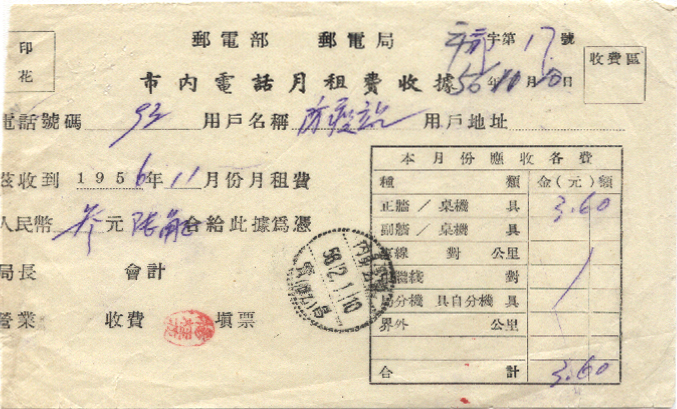 印花
郵電部 郵電局 字第17號
收費區
市內電話月租費收據 56年10月20日
電話號碼 93 用戶名稱 防疫站 用戶地址
茲收到1956年11月份月租費
人民幣 元 角 合給此據爲憑
局長 會計
營業 收費 填票
本月份應收各費
種類 金(元)額
正牆/桌機 具 3.60
副牆/桌機 具
線 對公里
對
局分機 具自分機 具
界外 公里
合計 3.60